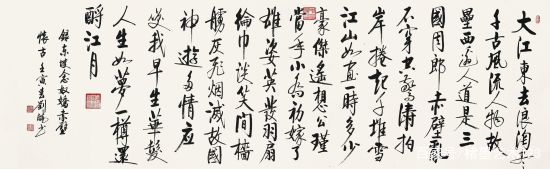 大江東去浪淘盡
千古風流人物故
壘西邊人道是三
國周郎赤壁亂
石穿空驚濤拍
岸捲起千堆雪
江山如畫一時多少
豪傑遙想公瑾
當年小喬初嫁了
雄姿英發羽扇
綸巾談笑間檣
艣灰飛烟滅故國
神遊多情應
笑我早生華髮
人生如夢一樽還
酹江月
錄東坡念奴嬌赤壁
懷古壬寅